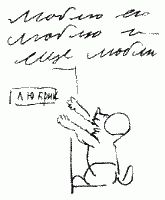 люблю ее
люблю и
еще люблю
Л Ю БРИК